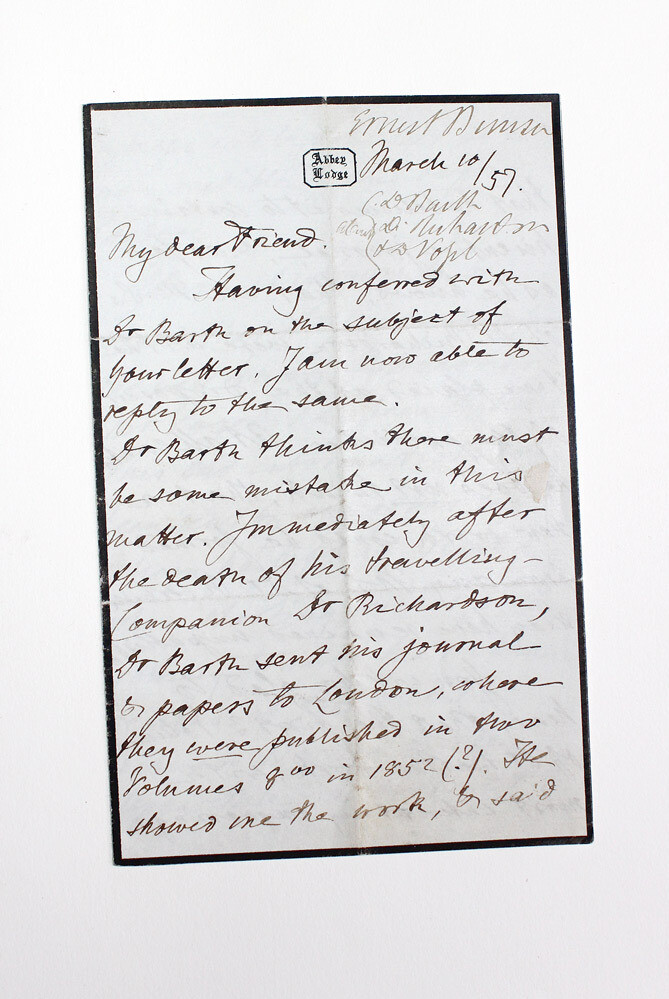 Ernest Bunsen
Abbey
Lodge
March 10/57.
Dr Barth
about Dr Richardson
& Dr Vogel
My dear Friend.
Having conferred with
Dr Barth on the subject of
your letter, I am now able to
reply to the same.
Dr Barth thinks there must
be some mistake in this
matter. Immediately after
the death of his travelling-
Companion Dr Richardson,
Dr Barth sent his journal
& papers to London, where
they were published in two
Volumes 8vo in 1852 (?). He
showed me the work, & said